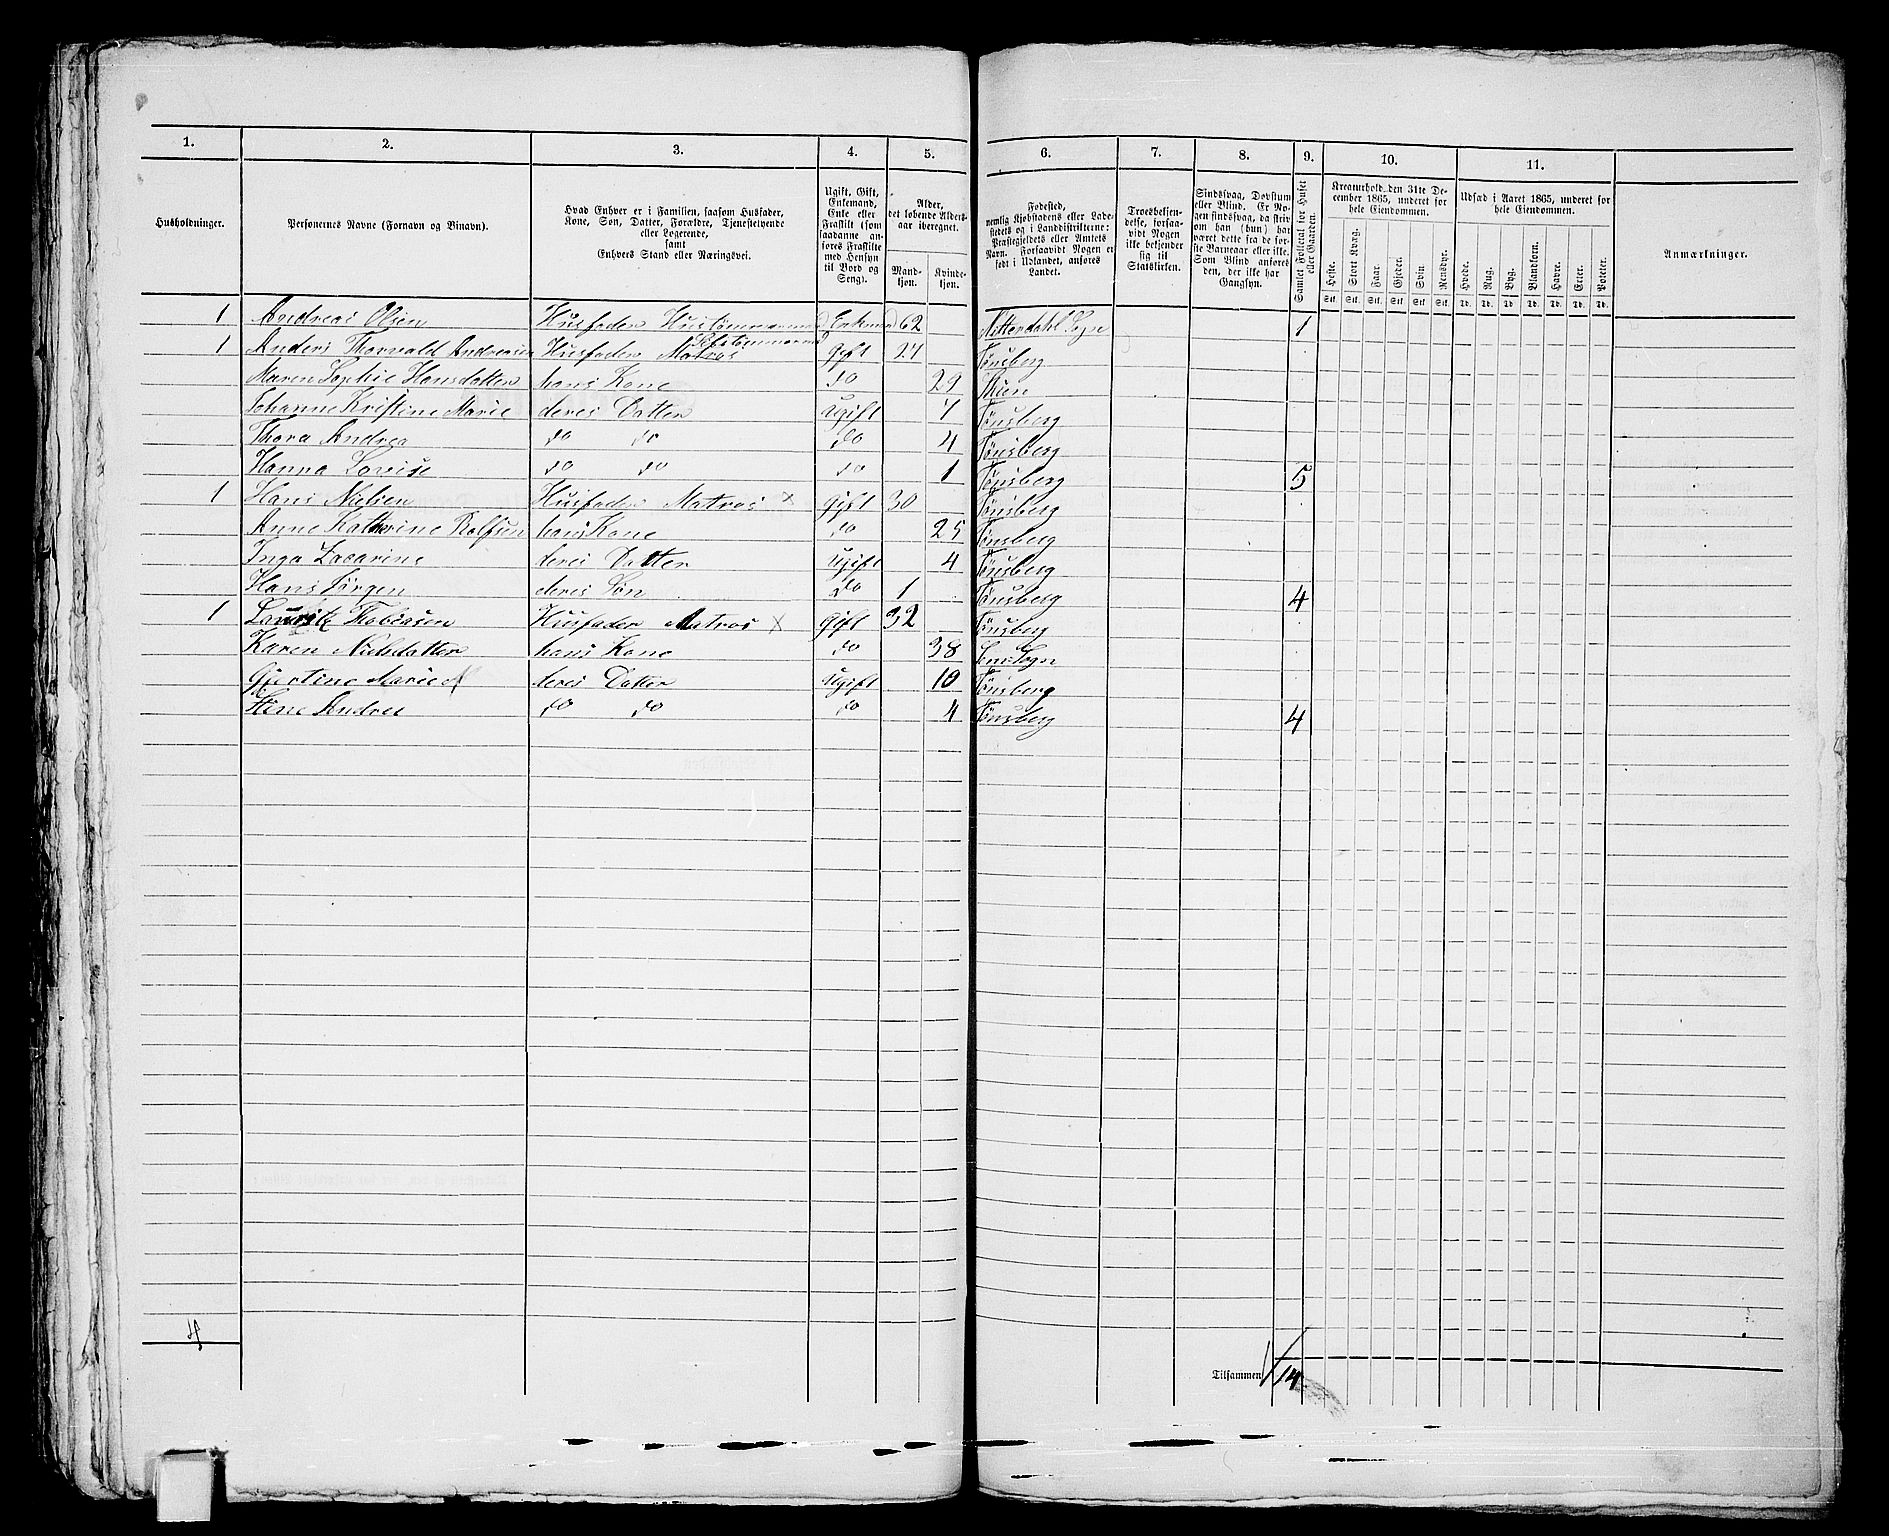 1. 2. 3. 4. 5. 6. 7. 8. 9. 10. 11.
Husholdninger.
Personernes Navne (Fornavn og Binavn).
Hvad Enhver er i Familien, saasom Husfader,
Kone, Søn, Datter, Forældre, Tjenestetyende
eller Logerende,
samt
Enhvers Stand eller Næringsvei.
Ugift, Gift,
Enkemand,
Enke eller
Fraskilt (som
saadanne an-
føres Fraskilte
med Hensyn
til Bord og
Seng).
Alder,
det løbende Alders-
aar iberegnet.
Mand-
kjøn.
Kvinde-
kjøn.
Fødested,
nemlig Kjøbstadens eller Lade-
stedets og i Landdistrikterne:
Præstegjeldets eller Amtets
Navn. Forsaavidt Nogen er
født i Udlandet, anføres
Landet.
Troesbekjen-
delse, forsaa-
vidt Nogen
ikke bekjender
sig til
Statskirken.
Sindssvag, Døvstum
eller Blind. Er No-
gen sindssvag, da skriv
om han (hun) har
været dette fra de før-
ste Barneaar eller ikke.
Som Blind anføres
den, der ikke har
Gangsyn.
Samlet Folketal for Huset
eller Gaarden.
Kreaturhold den 31te De-
cember 1865, underet for
hele Eiendommen.
Heste. Stort Kvæg. Faar. Gjeder. Svin. Rensdyr.
Stk. Stk. Stk. Stk. Stk. Stk.
Udsæd i Aaret 1865, underet for
hele Eiendommen.
Hvede. Rug. Byg. Blandkorn. Havre. Erter. Poteter.
Td. Td. Td. Td. Td. Td. Td.
Anmærkninger.
1 Andreas Olsen Husfader Hustømmermand Enkemand 62 Nitterdahl Sogn 1
1 Anders Thorvald Andreasen Husfader Matros Gift 27 Tønsberg
Maren Sophie Hansdatter hans Kone do 29 Skien
Johanne Kristine Marie deres Datter Ugift 7 Tønsberg
Thora Andrea do do do 4 Tønsberg
Hanna Lovise do do do 1 Tønsberg 5
1 Hans Nielsen Husfader Matros x Gift 30 Tønsberg
Anne Kathrine Rolfsen hans Kone do 25 Tønsberg
Inga Zacarine deres Datter Ugift 4 Tønsberg
Hans Jørgen deres Søn do 1 Tønsberg 4
1 Lauritz Tobiasen Husfader Matros x Gift 32 Tønsberg
Karen Nielsdatter hans Kone do 38 Sem Sogn
Gjertine Marie deres Datter Ugift 10 Tønsberg
Stine Andrea do do do 4 Tønsberg 4
4
Tilsammen 14